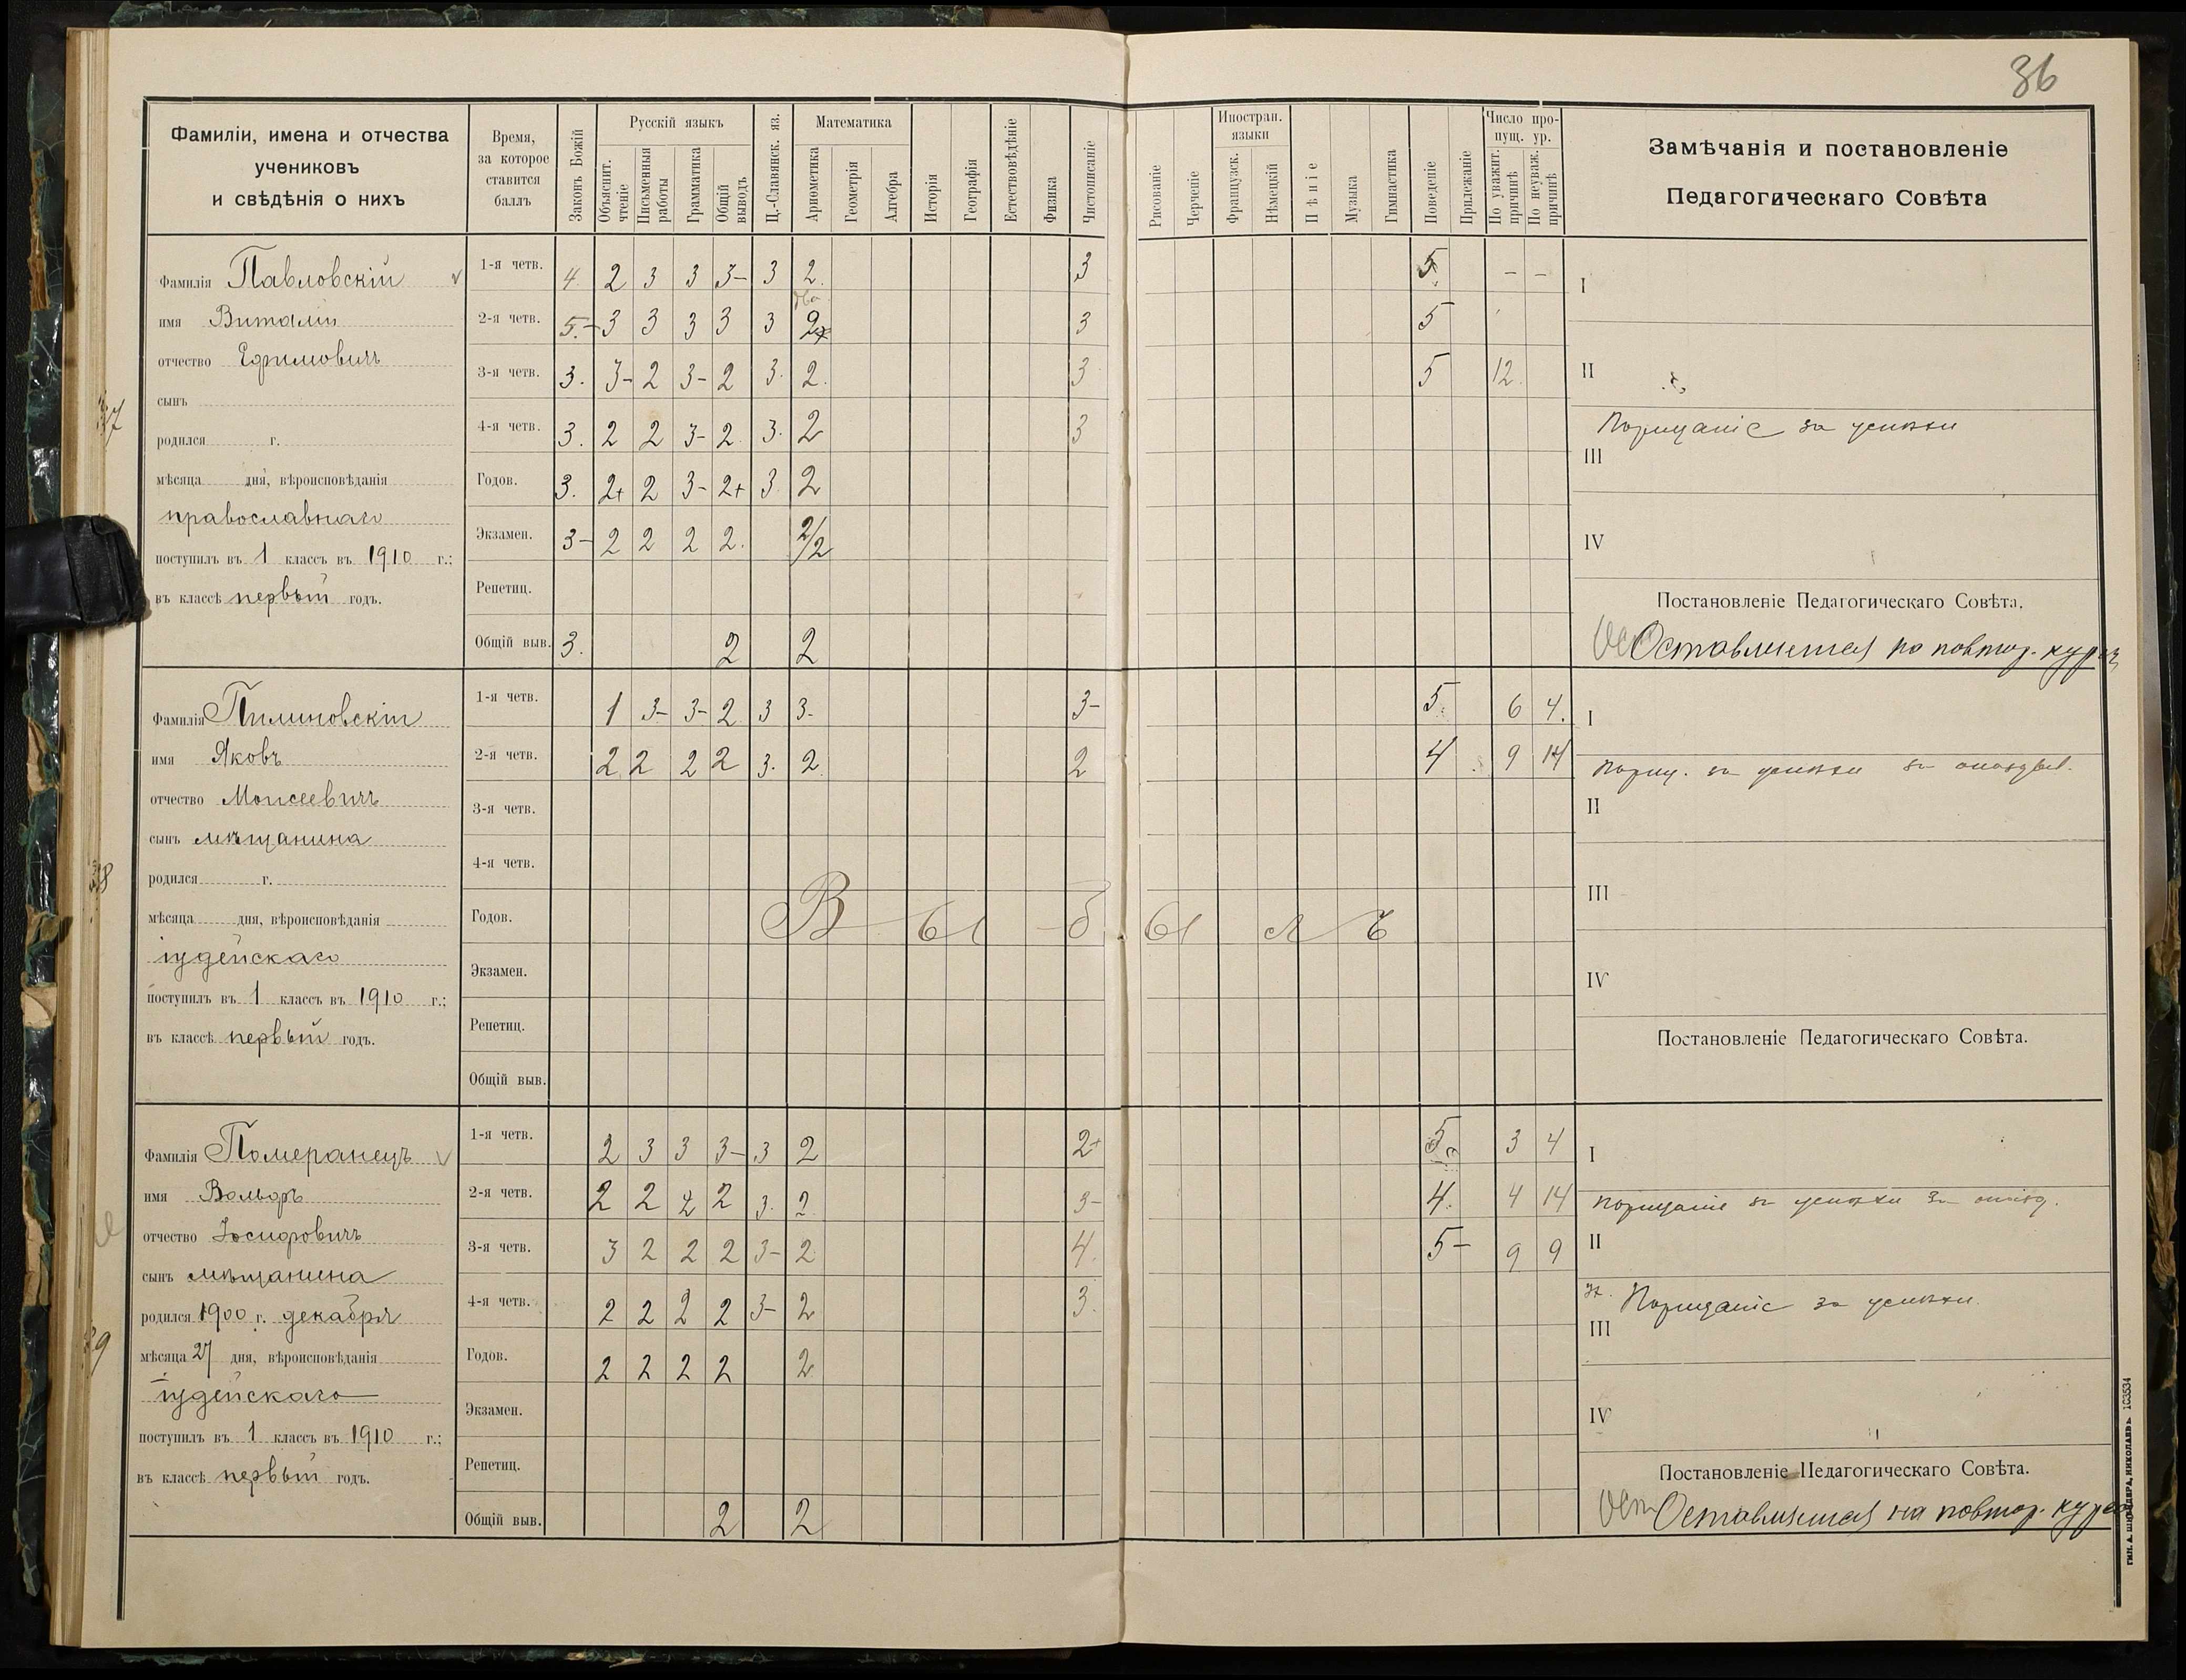 36
Фамиліи, имена и отчества
учениковъ
и свѣдѣнія о нихъ
Время,
за которое
ставится
баллъ
Законъ Божій
Русскій языкъ
Объяснит. чтеніе
Письменныя работы
Грамматика
Общій выводъ
Ц.-Славянск. яз.
Математика
Ариөметика
Геометрія
Алгебра
Исторія
Географія
Естествовѣдѣніе
Физика
Чистописаніе
Рисованіе
Черченіе
Иностран. языки
Французск.
Нѣмецкій
Пѣніе
Музыка
Гимнастика
Поведеніе
Прилежаніе
Число про-
пущ. ур.
По уважит. причинѣ
По неуваж. причинѣ
Замѣчанія и постановленіе
Педагогическаго Совѣта
37
Фамилія Павловскій
имя Виталій
отчество Ефимовичъ
сынъ
родился г.
мѣсяца дня, вѣроисповѣданія
православнаго
поступилъ въ 1 классъ въ 1910 г.;
въ классѣ первый годъ.
1-я четв. 4 2 3 3 3- 3 2 3 5 - -
два
2-я четв. 5- 3 3 3 3 3 2 3 5
3-я четв. 3. 3- 2 3- 2 3. 2. 3 5 12.
4-я четв. 3. 2 2 3- 2 3. 2 3
Годов. 3. 2+ 2 3- 2+ 3 2
Экзамен. 3- 2 2 2 2. 2/2
Репетиц.
Общій выв. 3. 2 2
I
II
Порицаніе за успѣхи
III
IV
Постановленіе Педагогическаго Совѣта.
Оставляется на повтор. курсъ
38
Фамилія Пилиновскій
имя Яковъ
отчество Моисеевичъ
сынъ мѣщанина
родился г.
мѣсяца дня, вѣроисповѣданія
іудейскаго
поступилъ въ 1 классъ въ 1910 г.;
въ классѣ первый годъ.
1-я четв. 1 3- 3- 2 3 3- 3- 5 6 4.
2-я четв. 2 2 2 2 3. 2 2 4 9 14
3-я четв.
4-я четв.
Годов.
В ы б ы л ъ
Экзамен.
Репетиц.
Общій выв.
I
Пориц. за успѣхи за опоздыв.
II
III
IV
Постановленіе Педагогическаго Совѣта.
39
Фамилія Померанецъ
имя Вольфъ
отчество Іосифовичъ
сынъ мѣщанина
родился 1900 г. декабря
мѣсяца 27 дня, вѣроисповѣданія
іудейскаго
поступилъ въ 1 классъ въ 1910 г.;
въ классѣ первый годъ.
1-я четв. 2 3 3 3- 3 2 2+ 5 3 4
2-я четв. 2 2 2 2 3. 2 3- 4. 4 14
3-я четв. 3 2 2 2 3- 2 4. 5- 9 9
4-я четв. 2 2 2 2 3- 2 3.
Годов. 2 2 2 2 2
Экзамен.
Репетиц.
Общій выв. 2 2
I
Порицаніе за успѣхи за опозд.
II
Порицаніе за успѣхи.
III
IV
Постановленіе Педагогическаго Совѣта.
Ост Оставляется на повтор. курсъ
НИКОЛАЕВЪ. 163534